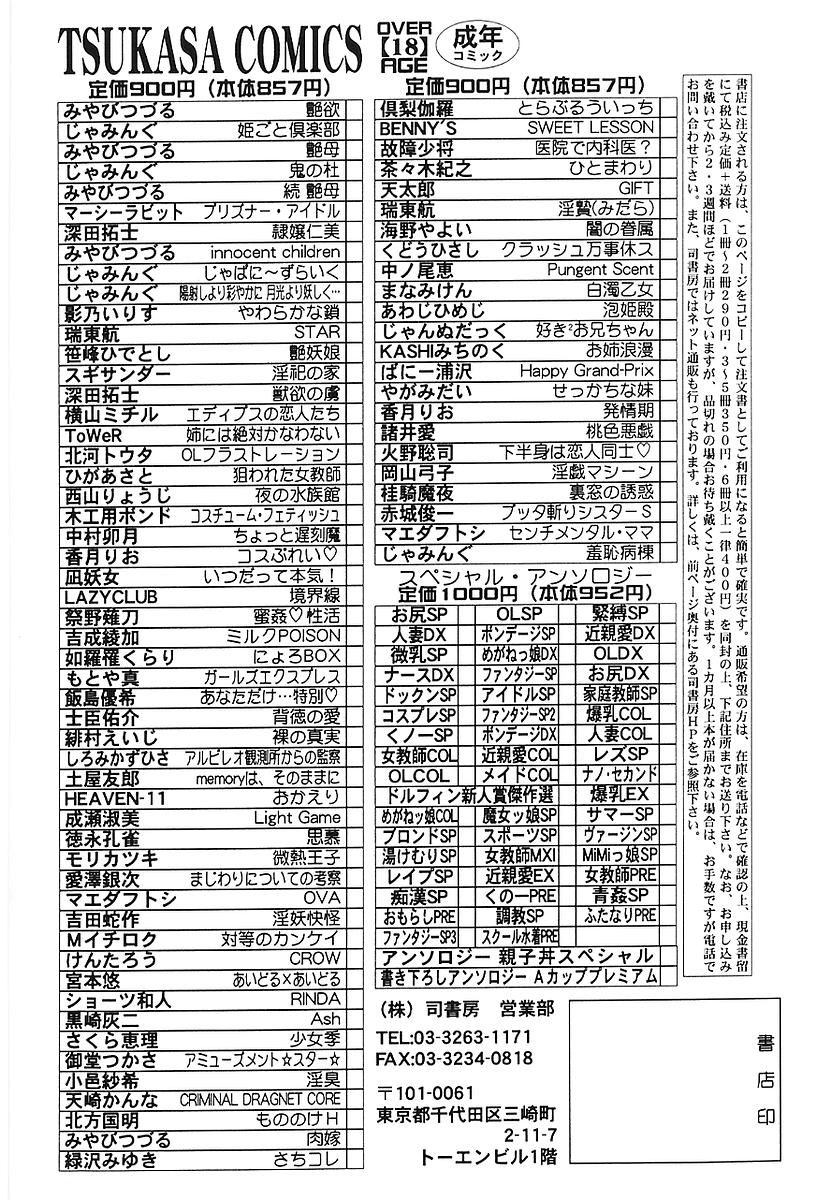 TSUKASA COMICS
OVER
【18】
AGE
成年
コミック
定価900円（本体857円）
みやびつづる 艶欲
じゃみんぐ 姫ごと倶楽部
みやびつづる 艶母
じゃみんぐ 鬼の杜
みやびつづる 続 艶母
マーシーラビット プリズナー・アイドル
深田拓士 隷嬢仁美
みやびつづる innocent children
じゃみんぐ じゃぱに～ずらいく
じゃみんぐ 陽射しより彩やかに 月光より妖しく…
影乃いりす やわらかな鎖
瑞東航 STAR
笹峰ひでとし 艶妖娘
スギサンダー 淫祀の家
深田拓士 獣欲の虜
横山ミチル エディプスの恋人たち
ToWeR 姉には絶対かなわない
北河トウタ OLフラストレーション
ひがあさと 狙われた女教師
西山りょうじ 夜の水族館
木工用ボンド コスチューム・フェティッシュ
中村卯月 ちょっと遅刻魔
香月りお コスぷれい♡
凪妖女 いつだって本気！
LAZYCLUB 境界線
祭野薙刀 蜜姦♡性活
吉成綾加 ミルクPOISON
如羅羅くらり にょろBOX
もとや真 ガールズエクスプレス
飯島優希 あなただけ…特別♡
士臣佑介 背徳の愛
緋村えいじ 裸の真実
しろみかずひさ アルビレオ観測所からの監察
土屋友郎 memoryは、そのままに
HEAVEN-11 おかえり
成瀬淑美 Light Game
徳永孔雀 思慕
モリカツキ 微熱王子
愛澤銀次 まじわりについての考察
マエダフトシ OVA
吉田蛇作 淫妖快怪
Mイチロク 対等のカンケイ
けんたろう CROW
宮本悠 あいどる×あいどる
ショーツ和人 RINDA
黒崎灰二 Ash
さくら恵理 少女季
御堂つかさ アミューズメント☆スター☆
小邑紗希 淫臭
天崎かんな CRIMINAL DRAGNET CORE
北方国明 もののけH
みやびつづる 肉嫁
緑沢みゆき さちコレ
定価900円（本体857円）
倶梨伽羅 とらぶるういっち
BENNY'S SWEET LESSON
故障少将 医院で内科医？
茶々木紀之 ひとまわり
天太郎 GIFT
瑞東航 淫贄(みだら)
海野やよい 闇の眷属
くどうひさし クラッシュ万事休ス
中ノ尾恵 Pungent Scent
まなみけん 白濁乙女
あわじひめじ 泡姫殿
じゃんぬだっく 好き²お兄ちゃん
KASHIみちのく お姉浪漫
ぱにー浦沢 Happy Grand-Prix
やがみだい せっかちな妹
香月りお 発情期
諸井愛 桃色悪戯
火野聡司 下半身は恋人同士♡
岡山弓子 淫戯マシーン
桂騎魔夜 裏窓の誘惑
赤城俊一 ブッタ斬りシスターS
マエダフトシ センチメンタル・ママ
じゃみんぐ 羞恥病棟
スペシャル・アンソロジー
定価1000円（本体952円）
お尻SP OLSP 緊縛SP
人妻DX ボンデージSP 近親愛DX
微乳SP めがねっ娘DX OLDX
ナースDX ファンタジーSP お尻DX
ドックンSP アイドルSP 家庭教師SP
コスプレSP ファンタジーSP2 爆乳COL
くノーSP ボンデージDX 人妻COL
女教師COL 近親愛COL レズSP
OLCOL メイドCOL ナノ・セカンド
ドルフィン新人賞傑作選 爆乳EX
めがねッ娘COL 魔女ッ娘SP サマーSP
ブロンドSP スポーツSP ヴァージンSP
湯けむりSP 女教師MXI MiMiっ娘SP
レイプSP 近親愛EX 女教師PRE
痴漢SP くの一PRE 青姦SP
おもらしPRE 調教SP ふたなりPRE
ファンタジーSP3 スクール水着PRE
アンソロジー 親子丼スペシャル
書き下ろしアンソロジー Aカッププレミアム
（株）司書房 営業部
TEL:03-3263-1171
FAX:03-3234-0818
〒101-0061
東京都千代田区三崎町
2-11-7
トーエンビル1階
書店印
書店に注文される方は、このページをコピーして注文書としてご利用になると簡単で確実です。通販希望の方は、在庫を電話などで確認の上、現金書留
にて税込み定価＋送料（1冊～2冊290円・3～5冊350円・6冊以上一律400円）を同封の上、下記住所までお送り下さい。なお、お申し込み
を戴いてから2・3週間ほどでお届けしていますが、品切れの場合お待ち戴くことがございます。1カ月以上本が届かない場合は、お手数ですが電話で
お問い合わせ下さい。また、司書房ではネット通販も行っております。詳しくは、前ページ奥付にある司書房HPをご参照下さい。